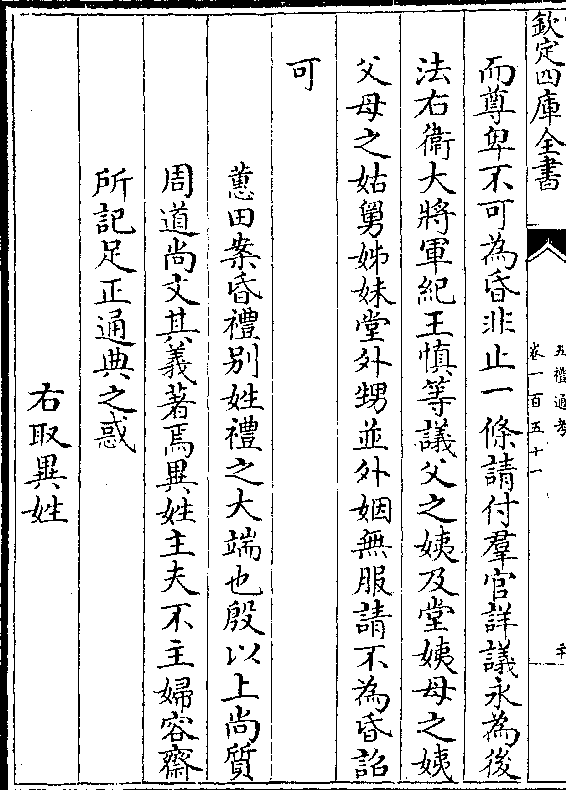 欽定四庫全書
五禮通考
卷一百五十一
二十
而尊卑不可為昏非止一條請付羣官詳議永為後
法右衛大將軍紀王慎等議父之姨及堂姨母之姨
父母之姑舅姊妹堂外甥並外姻無服請不為昏詔
可
蕙田案昏禮別姓禮之大端也殷以上尚質
周道尚文其義著焉異姓主夫不主婦容齋
所記足正通典之惑
右取異姓